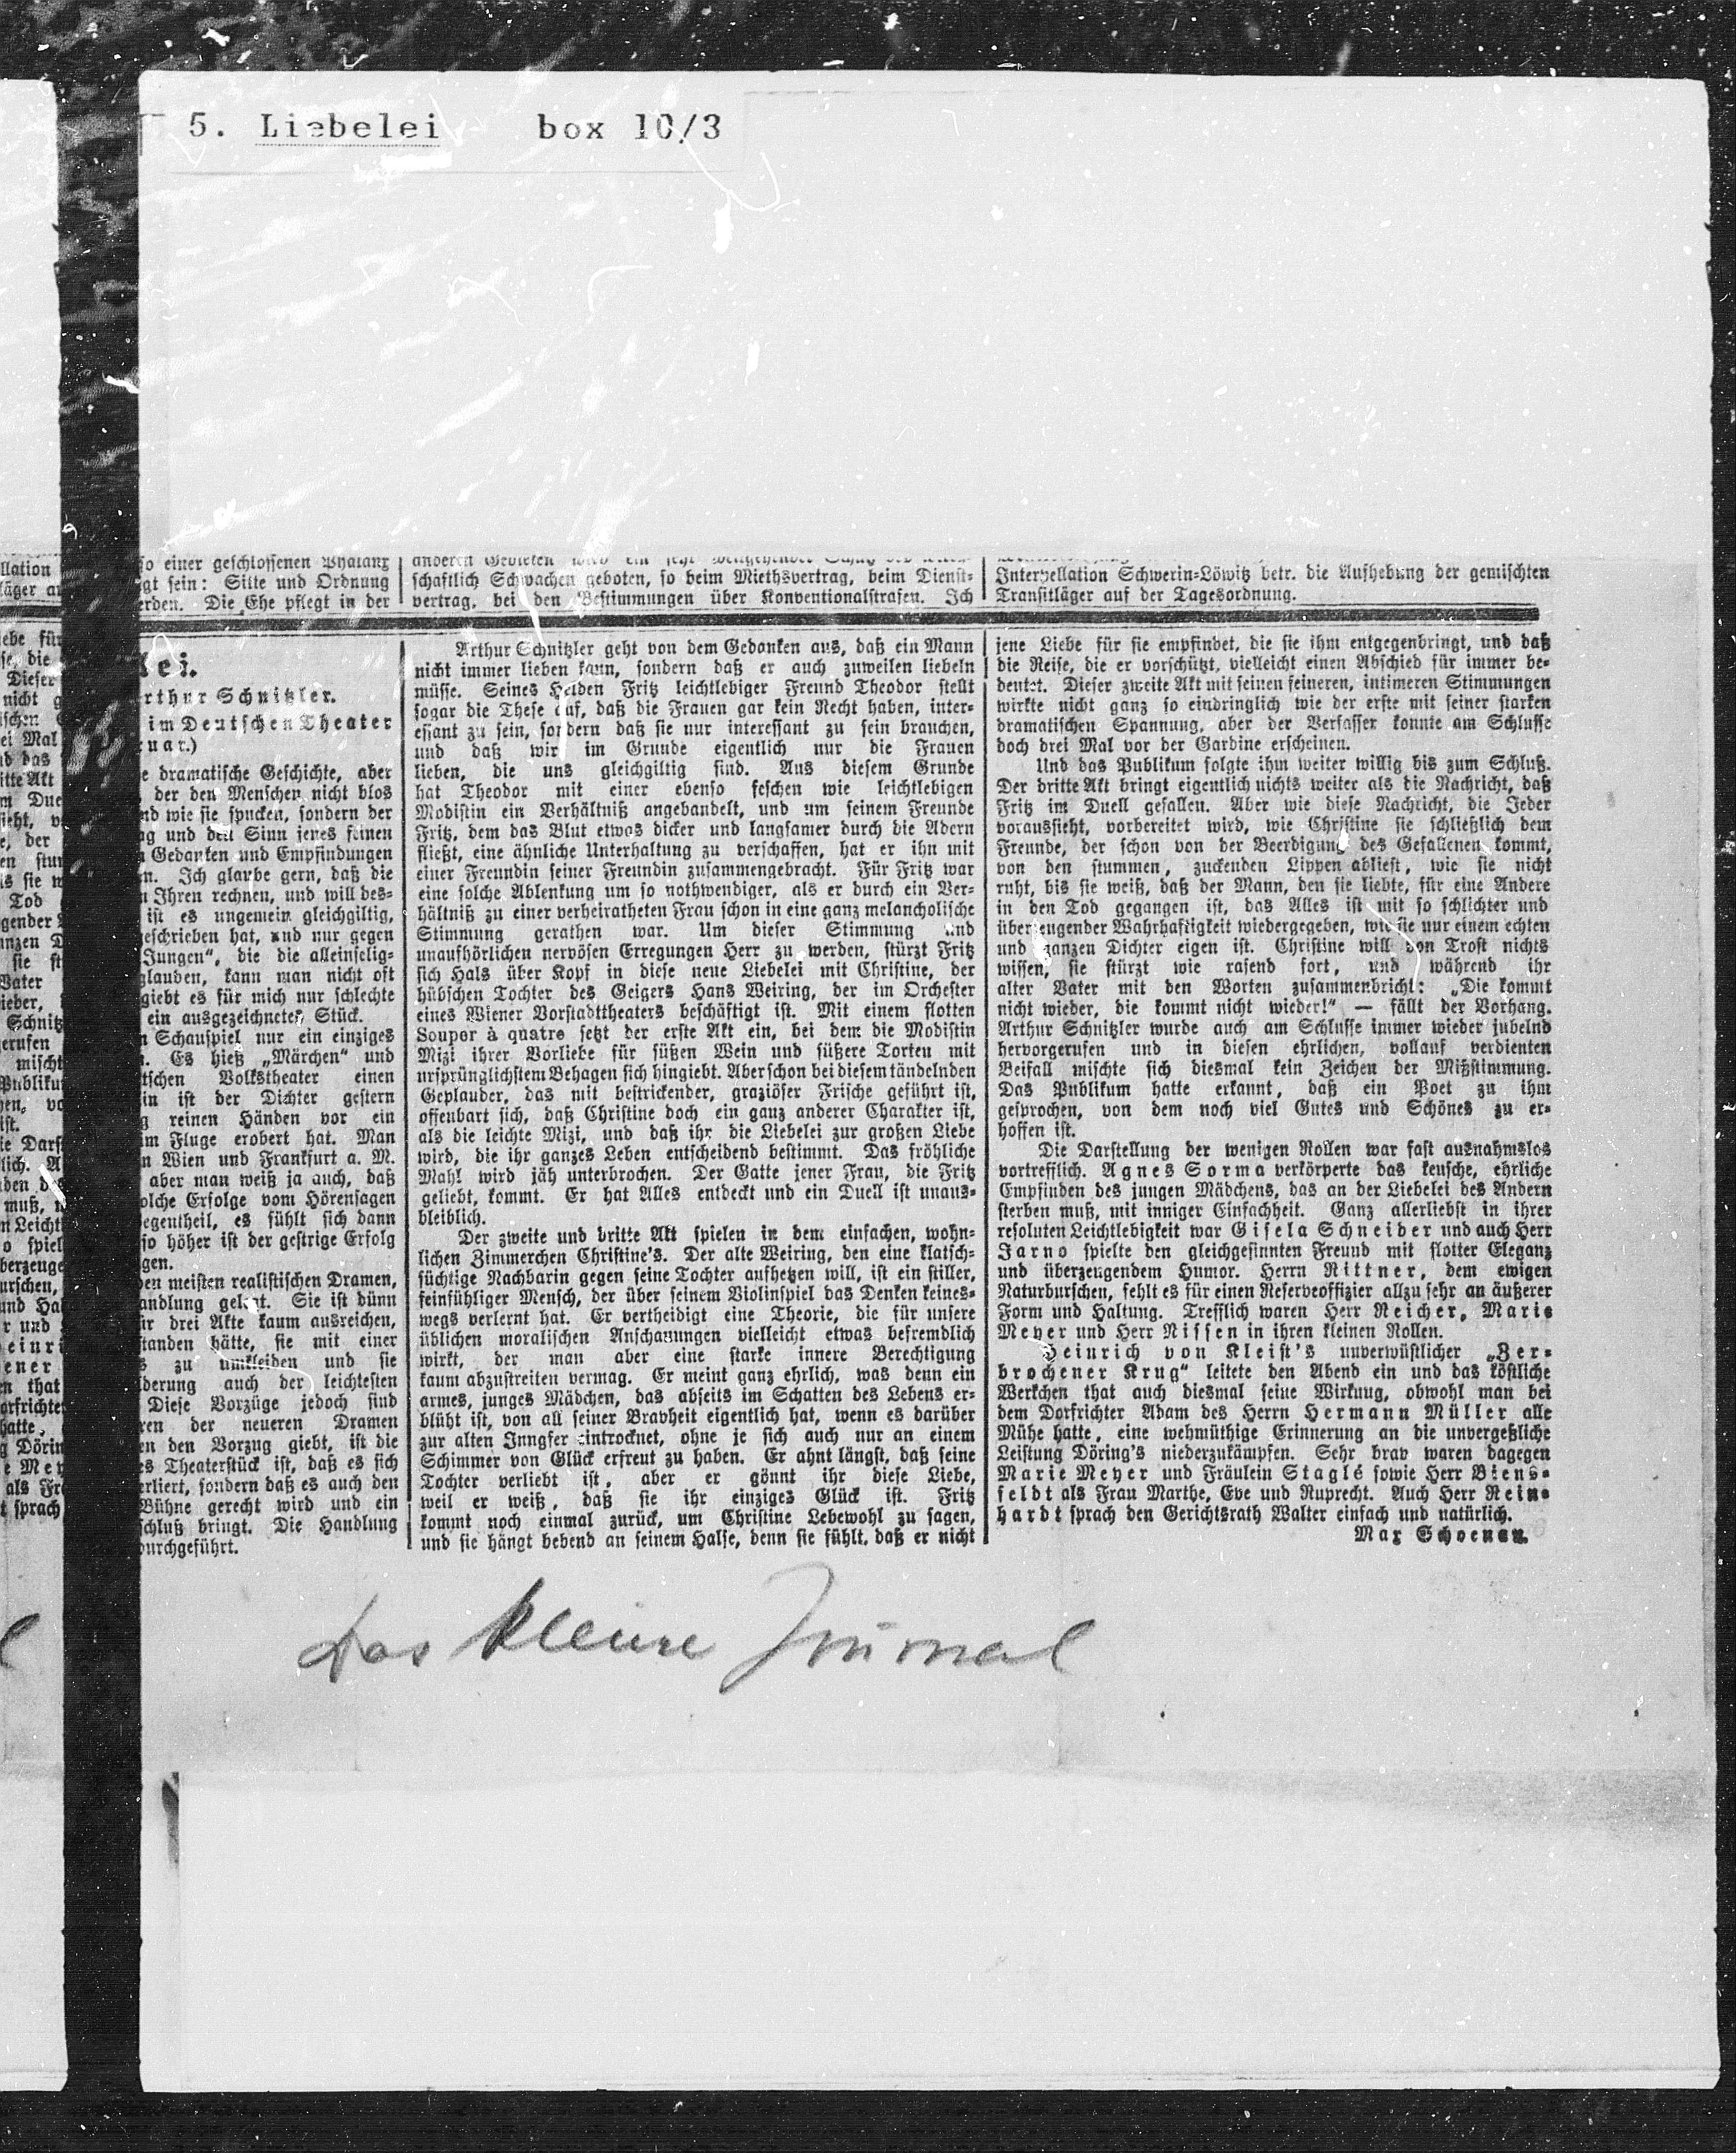 5. Liebelei box 10/3
so einer geschlossenen Phalanx
gt sein: Sitte und Ordnung
erden. Die Ehe pflegt in der
schaftlich Schwachen geboten, so beim Miethsvertrag, beim Dienst-
vertrag, bei den Bestimmungen über Konventionalstrafen. Ich
Interpellation Schwerin-Löwitz betr. die Aufhebung der gemischten
Transitläger auf der Tagesordnung.
lei.
rthur Schnitzler.
im Deutschen Theater
nuar.)
e dramatische Geschichte, aber
der den Menschen nicht blos
nd wie sie spucken, sondern der
ng und den Sinn jenes feinen
n Gedanken und Empfindungen
n. Ich glaube gern, daß die
n Ihren rechnen, und will des-
ist es ungemein gleichgiltig,
geschrieben hat, und nur gegen
Jungen“, die die alleinselig-
glauben, kann man nicht oft
giebt es für mich nur schlechte
ein ausgezeichnetes Stück.
n Schauspiel nur ein einziges
. Es hieß „Märchen“ und
tschen Volkstheater einen
in ist der Dichter gestern
g reinen Händen vor ein
im Fluge erobert hat. Man
n Wien und Frankfurt a. M.
aber man weiß ja auch, daß
olche Erfolge vom Hörensagen
egentheil, es fühlt sich dann
so höher ist der gestrige Erfolg
gen.
den meisten realistischen Dramen,
andlung gelegt. Sie ist dünn
ür drei Akte kaum ausreichen,
standen hätte, sie mit einer
s zu umkleiden und sie
derung auch der leichtesten
Diese Vorzüge jedoch sind
ren der neueren Dramen
en den Vorzug giebt, ist die
es Theaterstück ist, daß es sich
erliert, sondern daß es auch den
Bühne gerecht wird und ein
schluß bringt. Die Handlung
durchgeführt.
Arthur Schnitzler geht von dem Gedanken aus, daß ein Mann
nicht immer lieben kann, sondern daß er auch zuweilen liebeln
müsse. Seines Helden Fritz leichtlebiger Freund Theodor stellt
sogar die These auf, daß die Frauen gar kein Recht haben, inter-
essant zu sein, sondern daß sie nur interessant zu sein brauchen,
und daß wir im Grunde eigentlich nur die Frauen
lieben, die uns gleichgiltig sind. Aus diesem Grunde
hat Theodor mit einer ebenso feschen wie leichtlebigen
Modistin ein Verhältniß angebandelt, und um seinem Freunde
Fritz, dem das Blut etwas dicker und langsamer durch die Adern
fließt, eine ähnliche Unterhaltung zu verschaffen, hat er ihn mit
einer Freundin seiner Freundin zusammengebracht. Für Fritz war
eine solche Ablenkung um so nothwendiger, als er durch ein Ver-
hältniß zu einer verheiratheten Frau schon in eine ganz melancholische
Stimmung gerathen war. Um dieser Stimmung und
unaufhörlichen nervösen Erregungen Herr zu werden, stürzt Fritz
sich Hals über Kopf in diese neue Liebelei mit Christine, der
hübschen Tochter des Geigers Hans Weiring, der im Orchester
eines Wiener Vorstadttheaters beschäftigt ist. Mit einem flotten
Souper à quatre setzt der erste Akt ein, bei dem die Modistin
Mizi ihrer Vorliebe für süßen Wein und süßere Torten mit
ursprünglichstem Behagen sich hingiebt. Aber schon bei diesem tändelnden
Geplauder, das mit bestrickender, graziöser Frische geführt ist,
offenbart sich, daß Christine doch ein ganz anderer Charakter ist,
als die leichte Mizi, und daß ihr die Liebelei zur großen Liebe
wird, die ihr ganzes Leben entscheidend bestimmt. Das fröhliche
Mahl wird jäh unterbrochen. Der Gatte jener Frau, die Fritz
geliebt, kommt. Er hat Alles entdeckt und ein Duell ist unaus-
bleiblich.
Der zweite und dritte Akt spielen in dem einfachen, wohn-
lichen Zimmerchen Christine's. Der alte Weiring, den eine klatsch-
süchtige Nachbarin gegen seine Tochter aufhetzen will, ist ein stiller,
feinfühliger Mensch, der über seinem Violinspiel das Denken keines-
wegs verlernt hat. Er vertheidigt eine Theorie, die für unsere
üblichen moralischen Anschauungen vielleicht etwas befremdlich
wirkt, der man aber eine starke innere Berechtigung
kaum abzustreiten vermag. Er meint ganz ehrlich, was denn ein
armes, junges Mädchen, das abseits im Schatten des Lebens er-
blüht ist, von all seiner Bravheit eigentlich hat, wenn es darüber
zur alten Jungfer eintrocknet, ohne je sich auch nur an einem
Schimmer von Glück erfreut zu haben. Er ahnt längst, daß seine
Tochter verliebt ist, aber er gönnt ihr diese Liebe,
weil er weiß, daß sie ihr einziges Glück ist. Fritz
kommt noch einmal zurück, um Christine Lebewohl zu sagen,
und sie hängt bebend an seinem Halse, denn sie fühlt, daß er nicht
jene Liebe für sie empfindet, die sie ihm entgegenbringt, und daß
die Reise, die er vorschützt, vielleicht einen Abschied für immer be-
deutet. Dieser zweite Akt mit seinen feineren, intimeren Stimmungen
wirkte nicht ganz so eindringlich wie der erste mit seiner starken
dramatischen Spannung, aber der Verfasser konnte am Schlusse
doch drei Mal vor der Gardine erscheinen.
Und das Publikum folgte ihm weiter willig bis zum Schluß.
Der dritte Akt bringt eigentlich nichts weiter als die Nachricht, daß
Fritz im Duell gefallen. Aber wie diese Nachricht, die Jeder
voraussieht, vorbereitet wird, wie Christine sie schließlich dem
Freunde, der schon von der Beerdigung des Gefallenen kommt,
von den stummen, zuckenden Lippen abliest, wie sie nicht
ruht, bis sie weiß, daß der Mann, den sie liebte, für eine Andere
in den Tod gegangen ist, das Alles ist mit so schlichter und
überzeugender Wahrhaftigkeit wiedergegeben, wie sie nur einem echten
und ganzen Dichter eigen ist. Christine will von Trost nichts
wissen, sie stürzt wie rasend fort, und während ihr
alter Vater mit den Worten zusammenbricht: „Die kommt
nicht wieder, die kommt nicht wieder!“ — fällt der Vorhang.
Arthur Schnitzler wurde auch am Schlusse immer wieder jubelnd
hervorgerufen und in diesen ehrlichen, vollauf verdienten
Beifall mischte sich diesmal kein Zeichen der Mißstimmung.
Das Publikum hatte erkannt, daß ein Poet zu ihm
gesprochen, von dem noch viel Gutes und Schönes zu er-
hoffen ist.
Die Darstellung der wenigen Rollen war fast ausnahmslos
vortrefflich. Agnes Sorma verkörperte das keusche, ehrliche
Empfinden des jungen Mädchens, das an der Liebelei des Andern
sterben muß, mit inniger Einfachheit. Ganz allerliebst in ihrer
resoluten Leichtlebigkeit war Gisela Schneider und auch Herr
Jarno spielte den gleichgesinnten Freund mit flotter Eleganz
und überzeugendem Humor. Herrn Rittner, dem ewigen
Naturburschen, fehlt es für einen Reserveoffizier allzu sehr an äußerer
Form und Haltung. Trefflich waren Herr Reicher, Marie
Meyer und Herr Nissen in ihren kleinen Rollen.
Heinrich von Kleist's unverwüstlicher „Zer-
brochener Krug“ leitete den Abend ein und das köstliche
Werkchen that auch diesmal seine Wirkung, obwohl man bei
dem Dorfrichter Adam des Herrn Hermann Müller alle
Mühe hatte, eine wehmüthige Erinnerung an die unvergeßliche
Leistung Döring's niederzukämpfen. Sehr brav waren dagegen
Marie Meyer und Fräulein Staglé sowie Herr Biens-
feldt als Frau Marthe, Eve und Ruprecht. Auch Herr Rein-
hardt sprach den Gerichtsrath Walter einfach und natürlich.
Max Schoenau.
Das kleine Journal